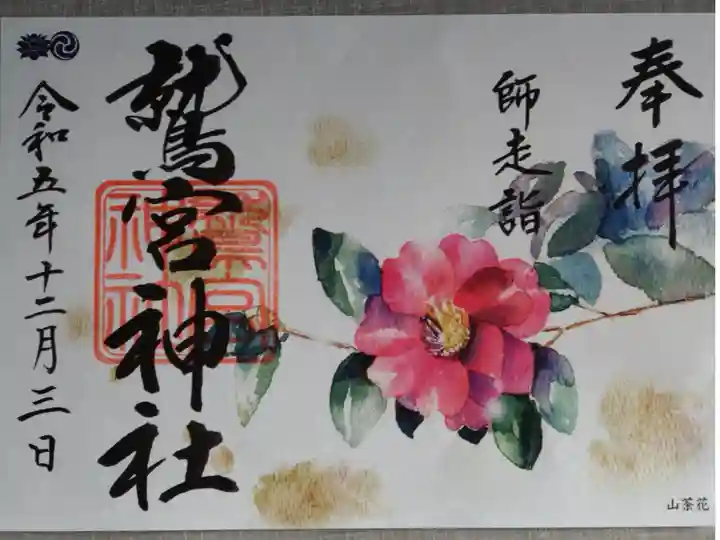 奉拝
師走詣
鷲宮神社
鷲宮神社
令和五年十二月三日
山茶花